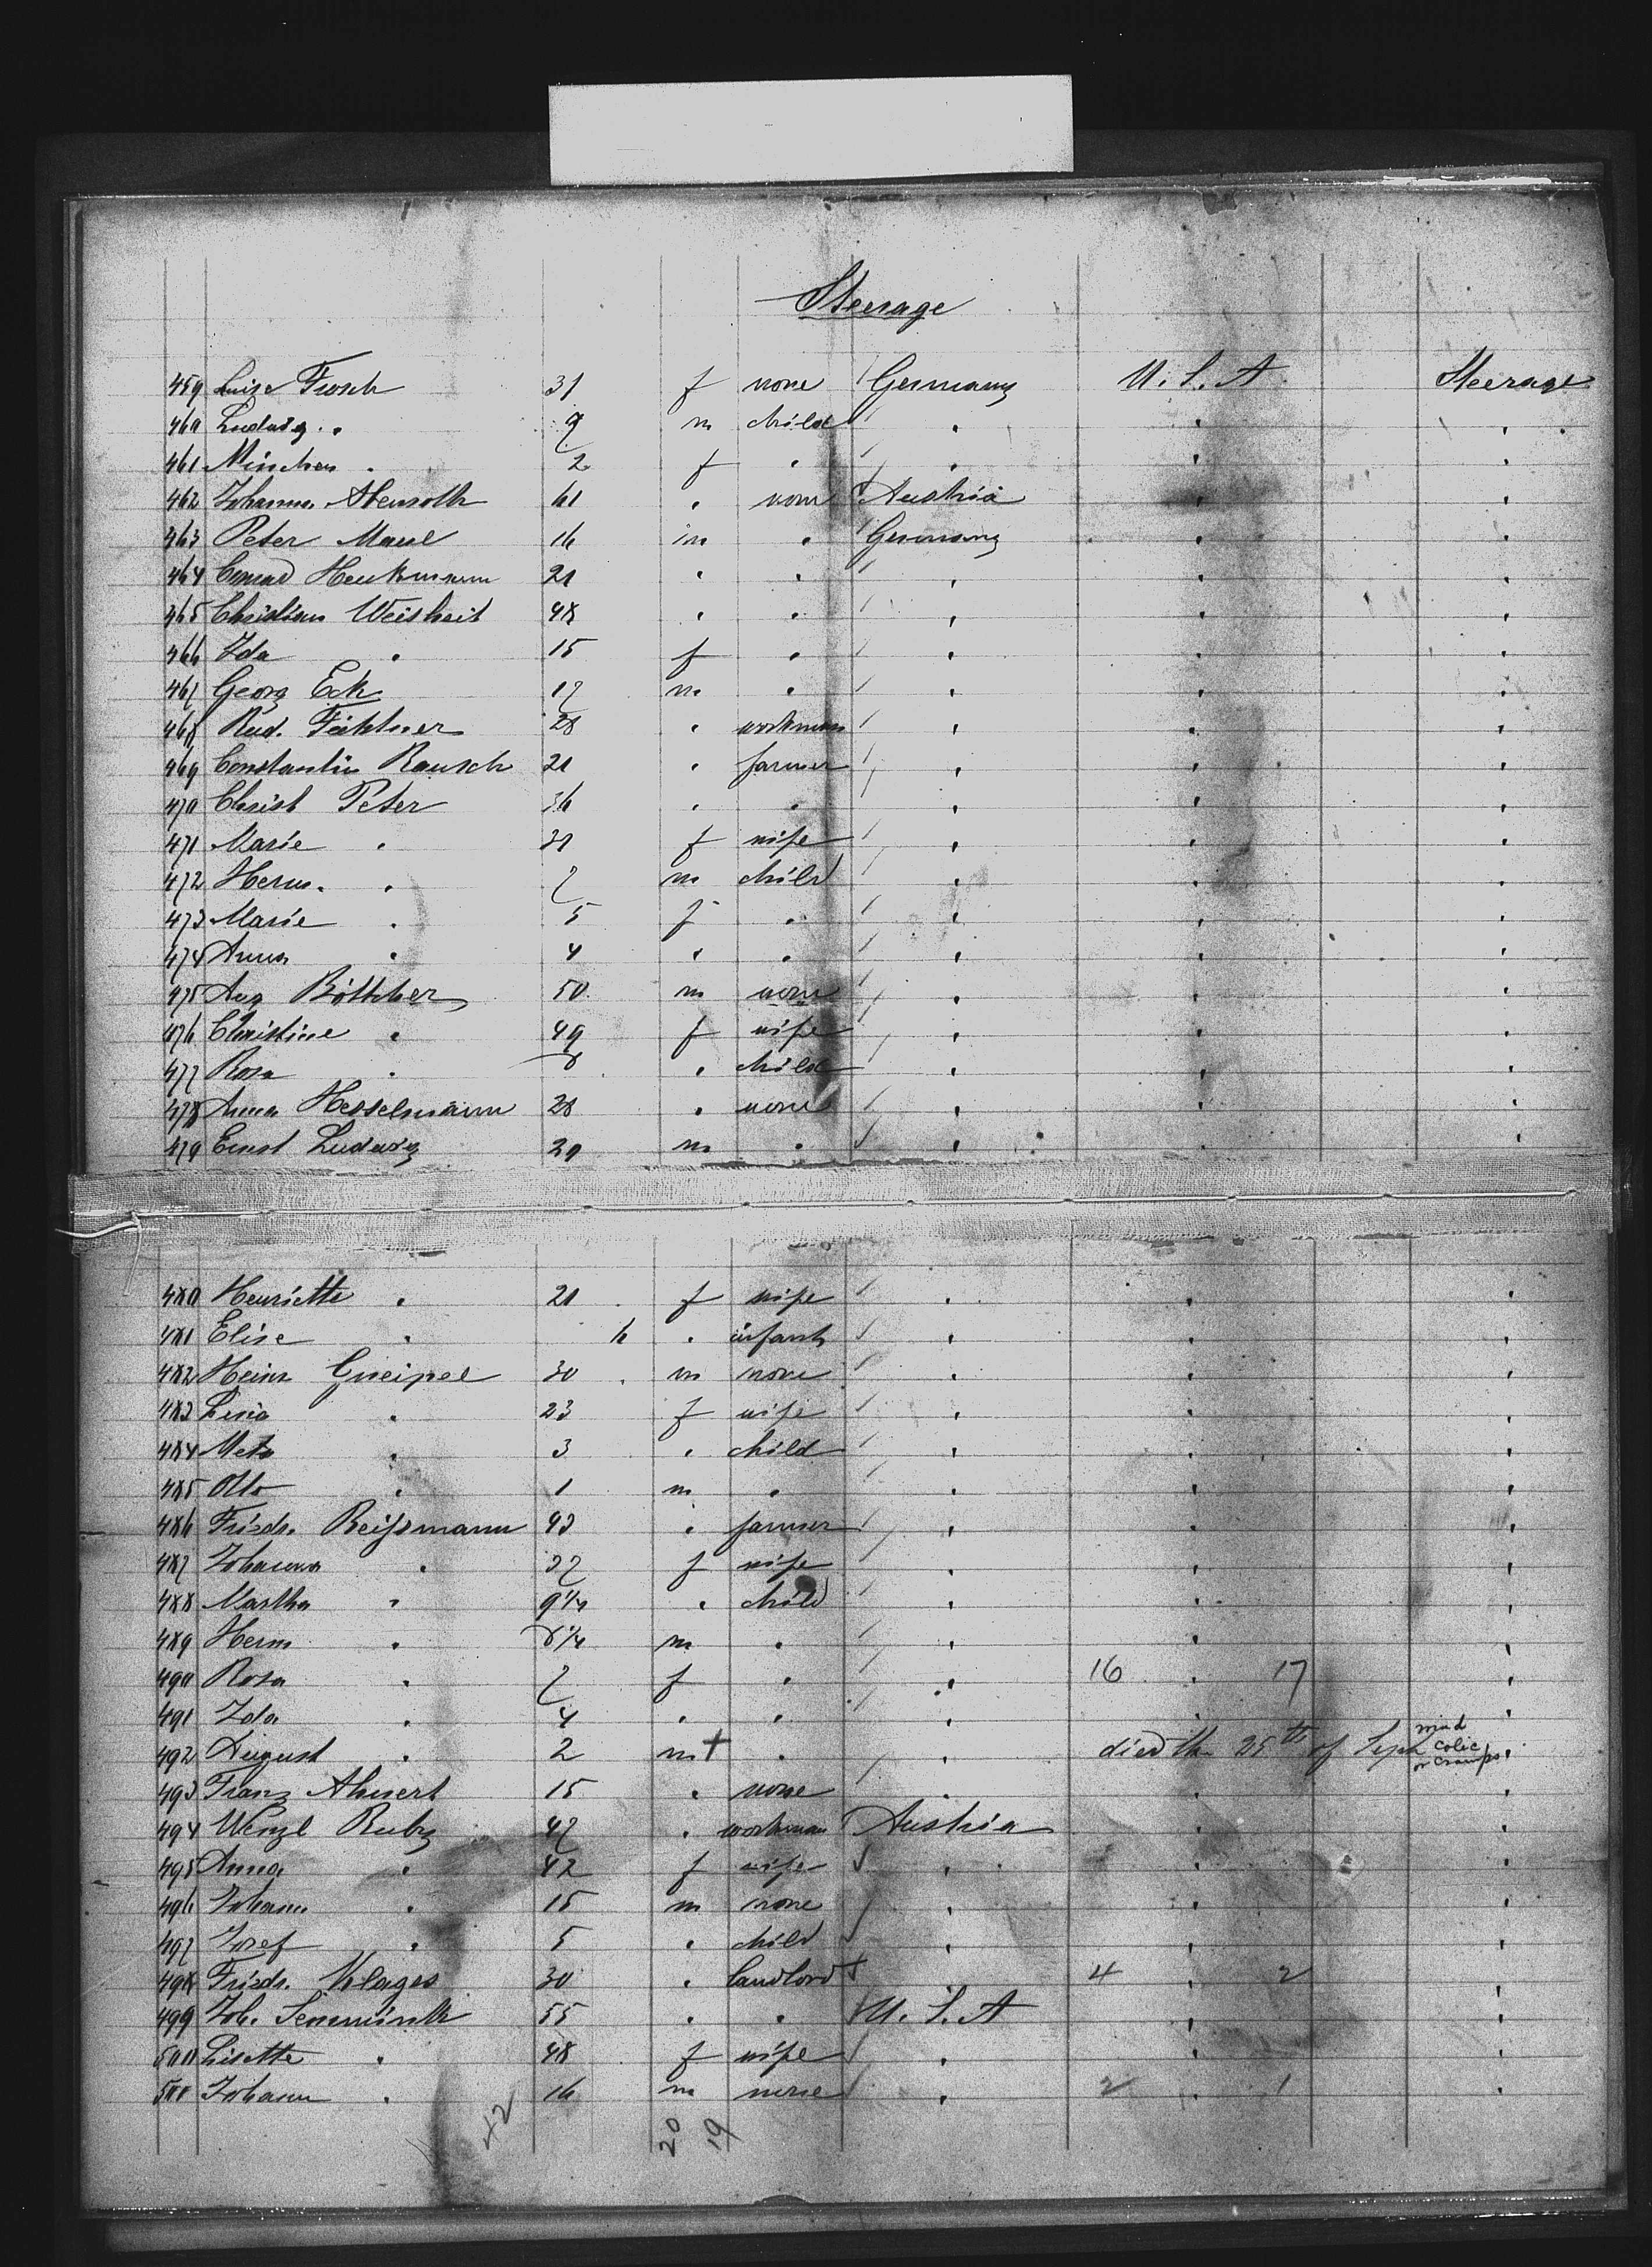 Steerage
459 Luise Frosch 31 f none Germany U. S. A Steerage
460 Ludwig " 9 m child " " "
461 Minchen " 2 f " " " "
462 Johanna Abenroth 61 " none Austria " "
463 Peter Maul 16 m " Germany " "
464 Conrad Henkmann 21 " " " " "
465 Christian Weisheit 48 " " " " "
466 Ida " 15 f " " " "
467 Georg Eck 17 m " " " "
468 Rud. 28 " workman " " "
469 Constantin Rausch 21 " farmer " " "
470 Christ Peter 36 " " " " "
471 Marie " 31 f wife " " "
472 Herm. " 7 m child " " "
473 Marie " 5 f " " " "
474 Anna " 4 " " " " "
475 Aug Böttcher 50 m none " " "
476 Christine " 49 f wife " " "
477 Rosa " 8 " child " " "
478 Anna Hesselmann 28 " none " " "
479 Ernst Ludwig 30 m " " " "
480 Henriette " 20 f wife " " "
481 Elise " 6 " infant " " "
482 Heinr Gneipel 30 m none " " "
483 Lina " 23 f wife " " "
484 Meta " 3 " child " " "
485 Otto " 1 m " " " "
486 Friedr. Reißmann 43 " farmer " " "
487 Johanna " 37 f wife " " "
488 Martha " 9 1/4 " child " " "
489 Herm " 8 1/4 m " " " "
490 Rosa " 7 f " " 16 " 17 "
491 Ida " 4 " " " " "
492 August " 2 m + " " died the 25th of Sept wind colic or cramps "
493 Franz Ahnert 15 " none " " "
494 Wenzl Ruby 47 " workman Austria " "
495 Anna " 42 f wife " " "
496 Johann " 15 m none " " "
497 Josef " 5 " child " " "
498 Friedr. Klages 30 " landlord + 4 " 2 "
499 Joh. 55 " " U. S. A " "
500 Lisette " 48 f wife " " "
501 Johann " 16 m none " 2 " 1 "
42 20 19